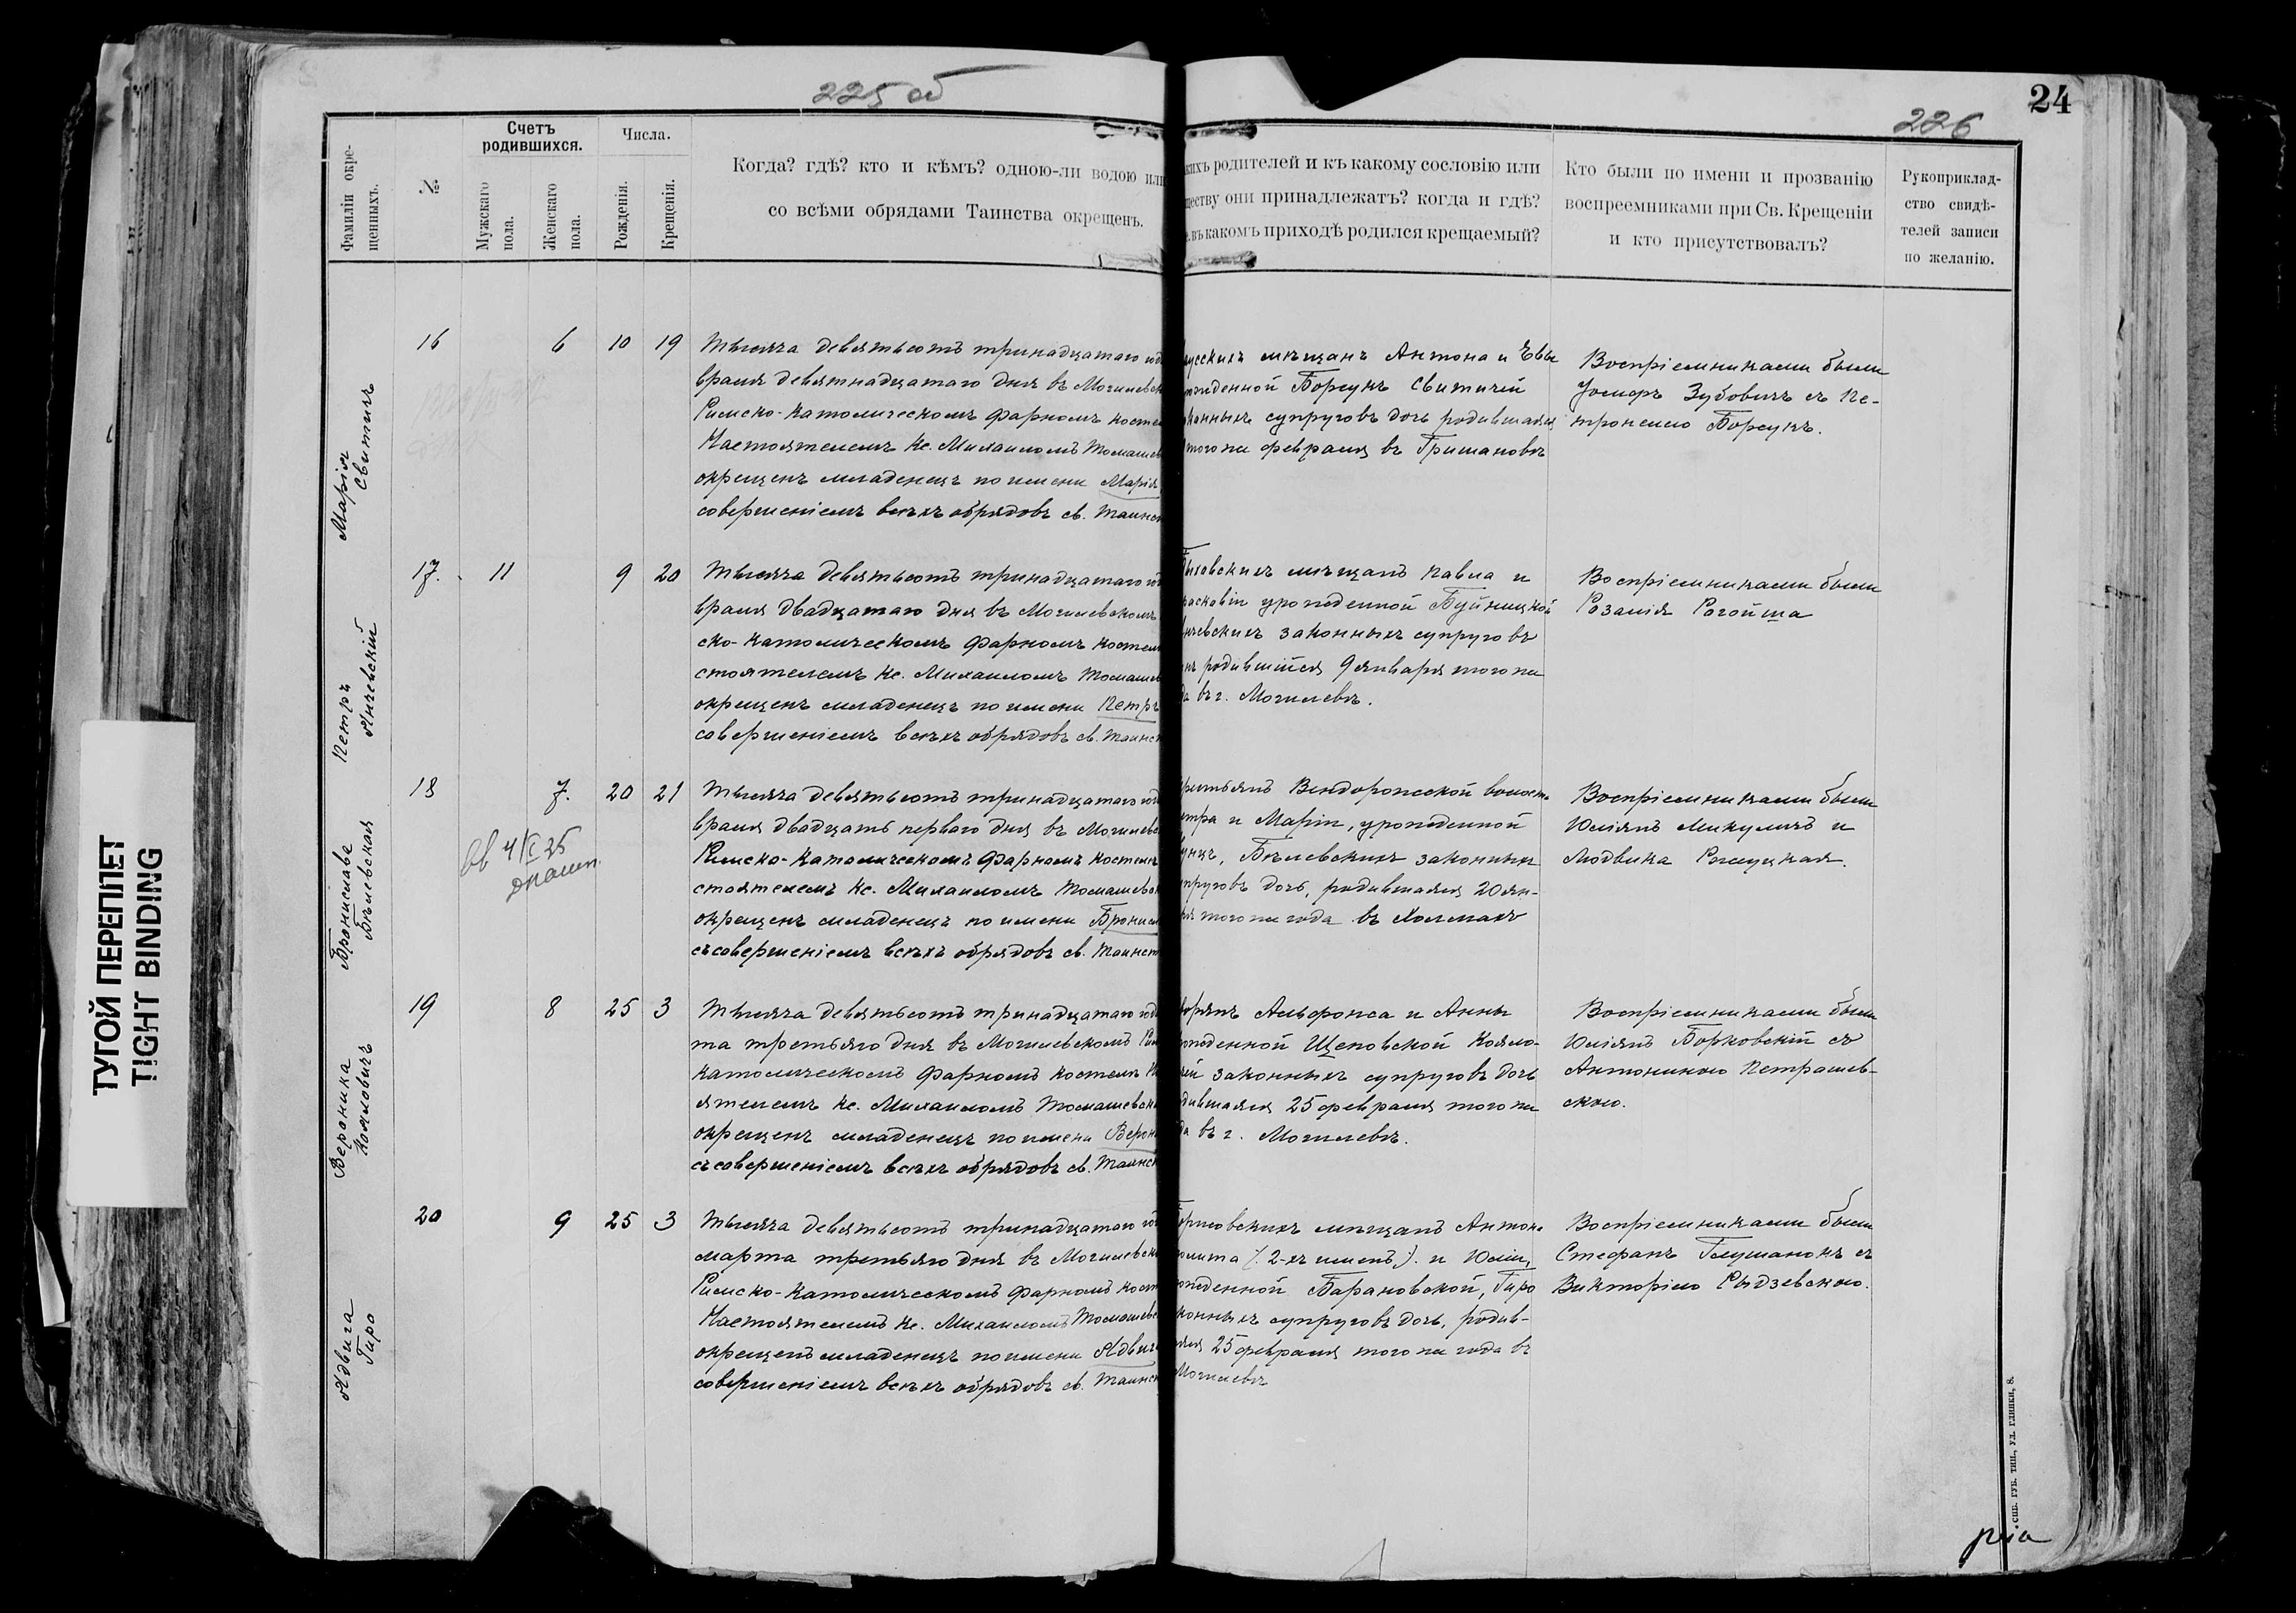 225 об
24
226
ТУГОЙ ПЕРЕПЛЕТ
TIGHT BINDING
Фамиліи окре-
щенныхъ.
№
Счетъ
родившихся.
Мужскаго
пола.
Женскаго
пола.
Числа.
Рожденія.
Крещенія.
Когда? гдѣ? кто и кѣмъ? одною-ли водою или
со всѣми обрядами Таинства окрещенъ.
кихъ родителей и къ какому сословію или
ществу они принадлежатъ? когда и гдѣ?
въ какомъ приходѣ родился крещаемый?
Кто были по имени и прозванію
воспреемниками при Св. Крещеніи
и кто присутствовалъ?
Рукоприклад-
ство свидѣ-
телей записи
по желанію.
Марія
Свитичъ
16
6
10
19
Тысяча девятьсотъ тринадцатаго год
враля девятнадцатаго дня въ Могилевск
Римско-католическомъ фарномъ косте
Настоятелемъ Кс. Михаиломъ Томашев
окрещенъ младенецъ по имени Марія
совершеніемъ всѣхъ обрядовъ св. Таинс
усскихъ мѣщанъ Антона и Евы
рожденной Борсукъ Свитичей
конныхъ супруговъ дочь родившаяся
того же февраля въ Гришановѣ
Воспріемниками были
Іосифъ Зубовичъ съ Пе-
тронелею Борсукъ.
Петръ
Янчевскій
17.
11
9
20
Тысяча девятьсотъ тринадцатаго го
враля двадцатаго дня въ Могилевскомъ
ско-католическомъ фарномъ косте
стоятелемъ Кс. Михаиломъ Томашев
окрещенъ младенецъ по имени Петръ
совершеніемъ всѣхъ обрядовъ св. Таинст
ыховскихъ мѣщанъ Павла и
расковіи урожденной Буйницкой
нчевскихъ законныхъ супруговъ
нъ родившійся 9 января того же
да въ г. Могилевѣ.
Воспріемниками были
Розалія Рогойша
Бронислава
Бѣлевская
18
7.
20
21
Тысяча девятьсотъ тринадцатаго год
враля двадцать перваго дня въ Могилевс
Римско-католическомъ фарномъ костел
стоятелемъ Кс. Михаиломъ Томашевс
окрещенъ младенецъ по имени Бронисл
съ совершеніемъ всѣхъ обрядовъ св. Таинст
рестьянъ Вендорожской волост
етра и Маріи, урожденной
Бѣлевскихъ законныхъ
пруговъ дочь, родившаяся 20 ян-
ря того же года въ Холмахъ
Воспріемниками были
Юліанъ Микуличъ и
Людвика
Вероника
Коялловичъ
19
8
25
3
Тысяча девятьсотъ тринадцатаго год
та третьяго дня въ Могилевскомъ Рим
католическомъ фарномъ костелѣ Н
ятелемъ Кс. Михаиломъ Томашевск
окрещенъ младенецъ по имени Верон
съ совершеніемъ всѣхъ обрядовъ св. Таинст
ворянъ Альфонса и Анны
рожденной Щеповской Коялло-
ей законныхъ супруговъ дочь
дившаяся 25 февраля того же
да въ г. Могилевѣ.
Воспріемниками были
Юліанъ Борковскій съ
Антониною Петрашев-
скою.
Ядвига
Гиро
20
9
25
3
Тысяча девятьсотъ тринадцатаго го
марта третьяго дня въ Могилевск
Римско-католическомъ фарномъ кост
Настоятелемъ Кс. Михаиломъ Томашевс
окрещенъ младенецъ по имени Ядвиг
совершеніемъ всѣхъ обрядовъ св. Таинст
орисовскихъ мѣщанъ Антона
полита (: 2-хъ именъ :) и Юліи,
рожденной Барановской, Гиро
конныхъ супруговъ дочь, родив-
аяся 25 февраля того же года въ
Могилевѣ
Воспріемниками были
Стефанъ Глушанокъ съ
Викторіею Рыдзевскою.
СПБ. ГУБ. ТИП., УЛ. ГЛИНКИ, 8.